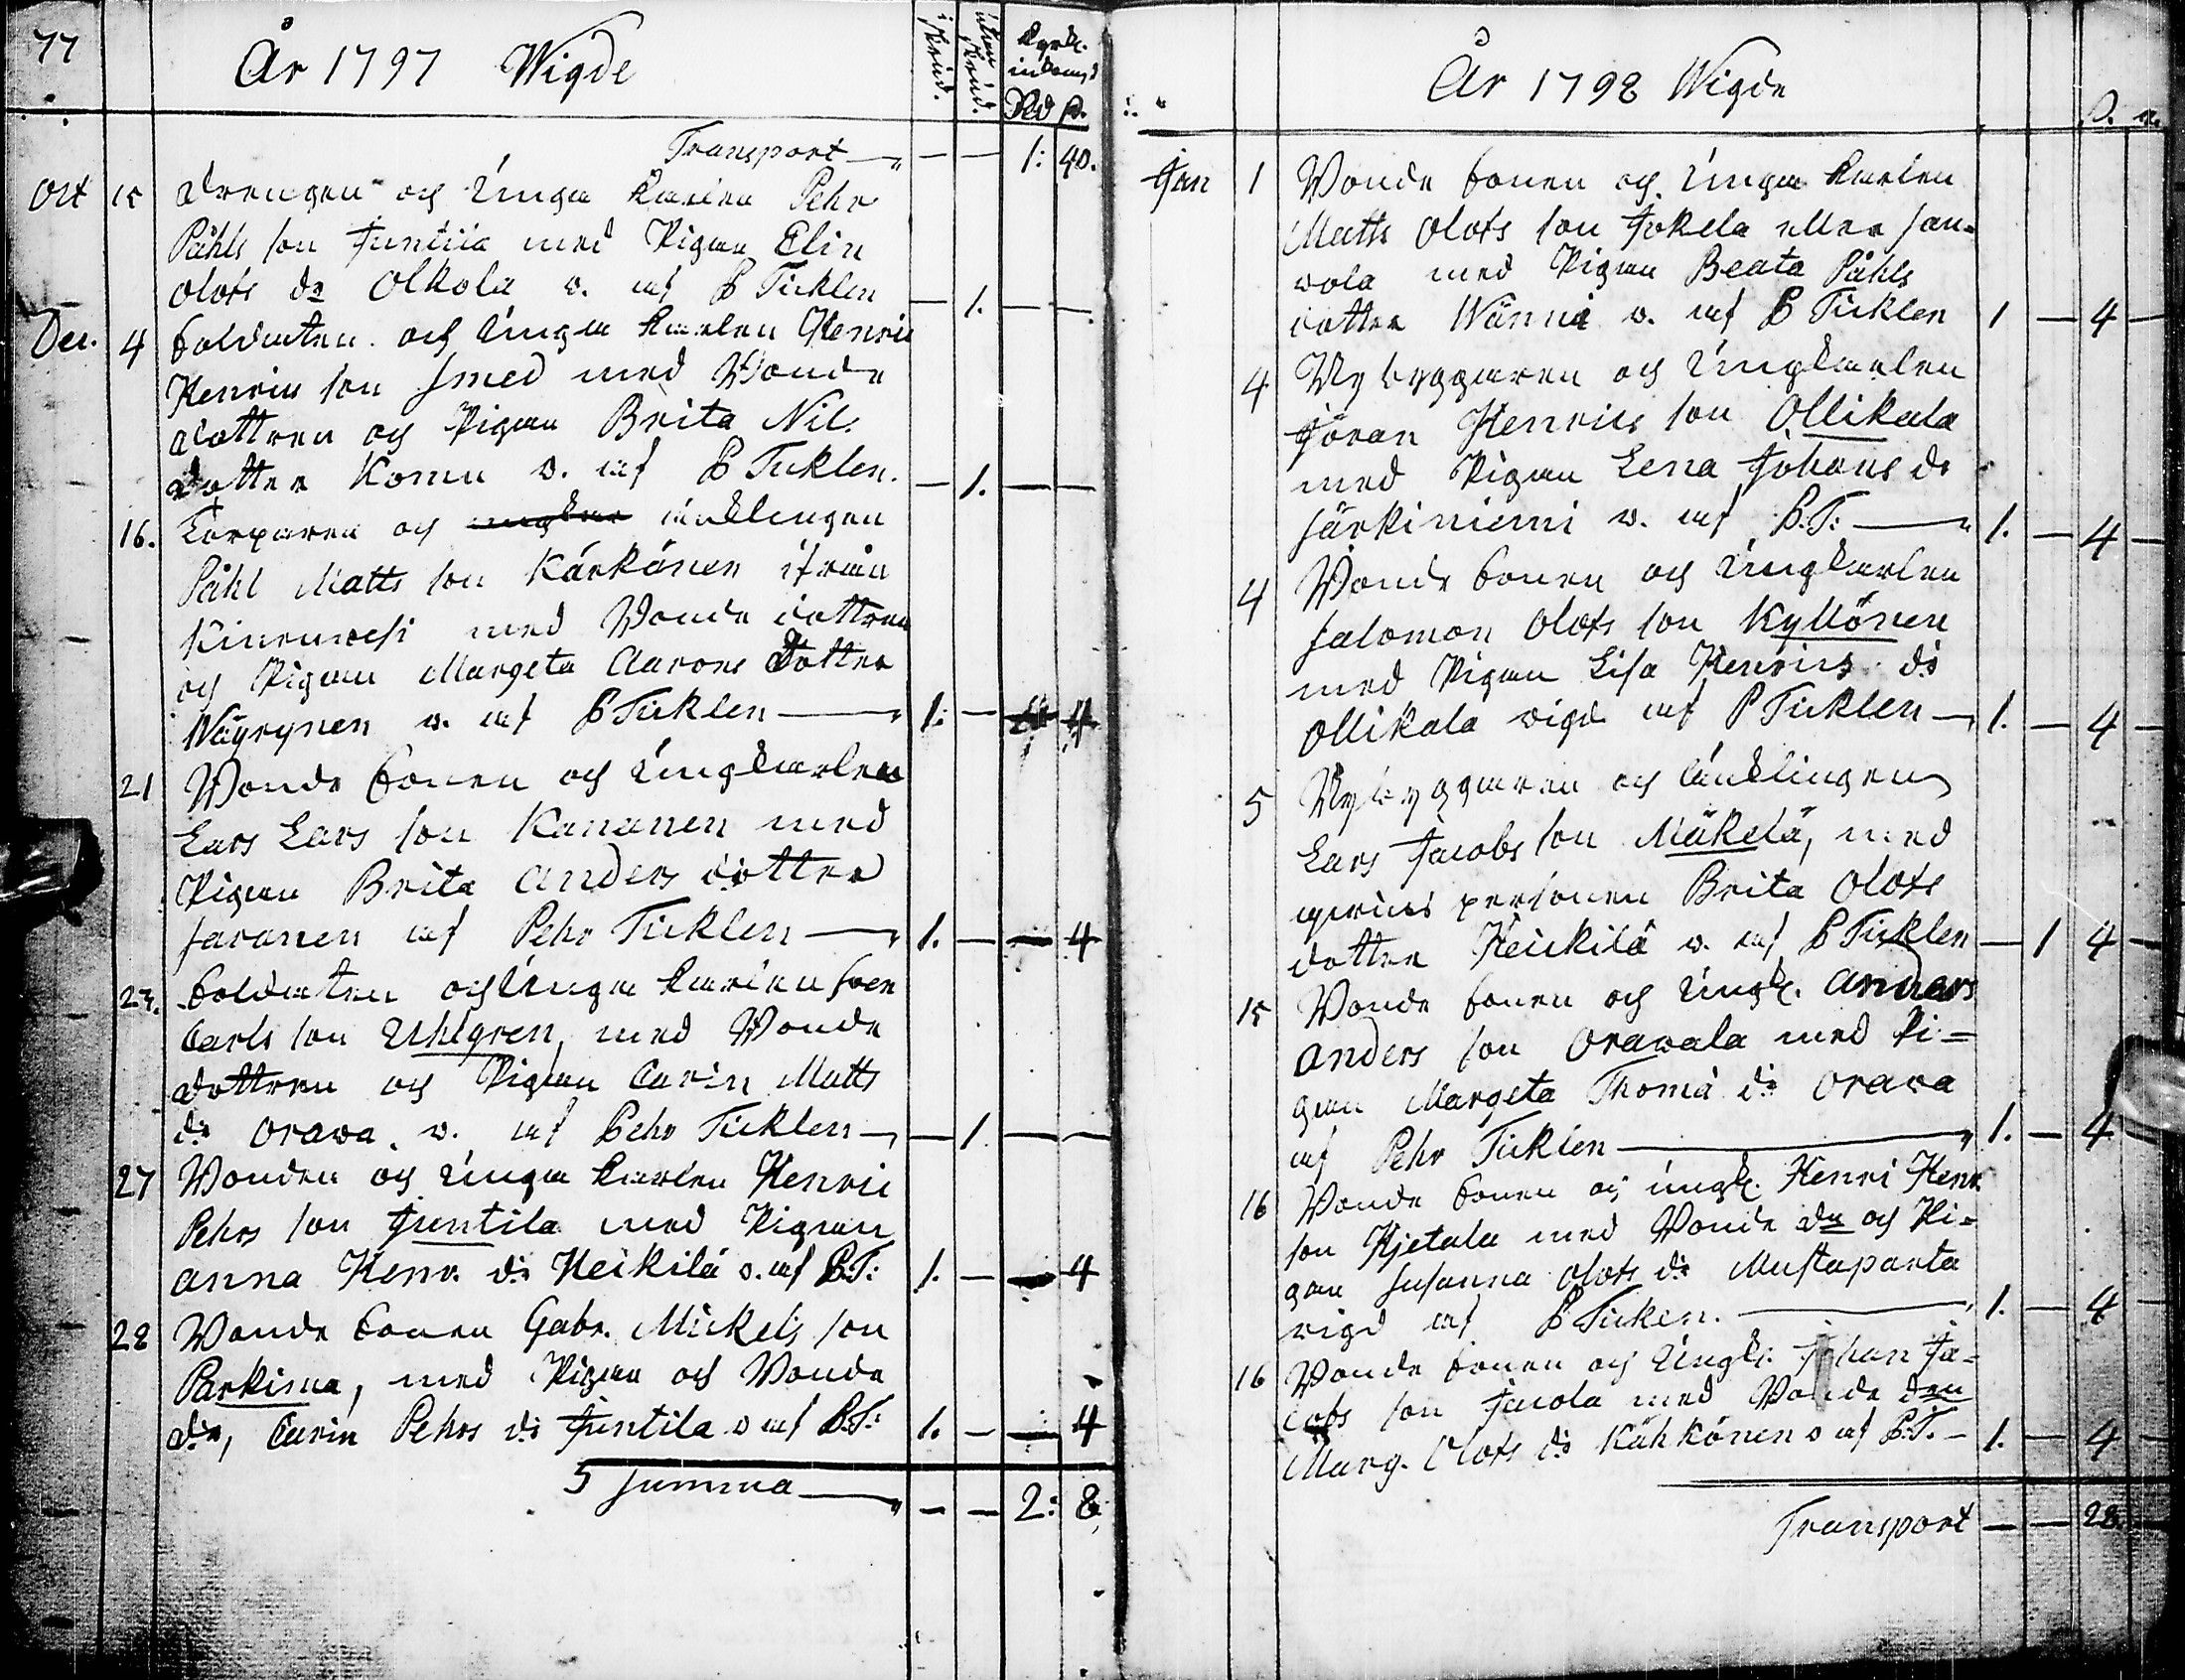 77
År 1797 Wigde
i krud.
utan krud.
Kyrk.
inkoms
Rd s.
Transport — — 1: 40.
Oct 15 Drengen och Unga Karlen Pehr
Påhls son Juntiia med Pigan Elin
Olofs dr Olkola v. af P Ticklen — 1. — —
Dec. 4 Soldaten och Unga Karlen Henric
Henrics son Smed med Bonde
dottren och Pigan Brita Nils
dotter Komu v. af P Ticklen. — 1. — —
16. Torparen och änklingen
Påhl Matts son Kärkönen ifrån
Kinnunesi med Bonde dottren
och Pigan Margeta Aarons Dotter
Wäyrynen v. af P Ticklen — 1. — 4
21 Bonde Sonen och Ungkarlen
Lars Lars son Kananen med
Pigan Brita Anders dotter
Saranen af Pehr Ticklen — 1. — — 4
27. Soldaten och Unga Karlen Sven
Carls son Uhlgren, med Bonde
dottren och Pigan Carin Matts
dr Orawa. v. af Pehr Ticklen — — 1 — —
27 Bonden och Unga Karlen Henric
Pehrs son Juntila med Pigan
Anna Henr. dr Heikilä v. af P.T: 1. — — 4
28 Bonde Sonen Gabr. Mickels son
Parkima, med Pigan och Bonde
dr, Carin Pehrs dr Juntila v af P.T: 1. — — 4
5 Summa — — — 2: 8.
År 1798 Wigde
s. r.
Jan 1 Bonde Sonen och Unga Karlen
Matts Olofs son Jokela eller San-
wola med Pigan Beata Påhls
dotter Wänni v. af P Ticklen 1 — 4 —
4 Nybyggaren och Ungkarlen
Jöran Henrics son Ollikala
med Pigan Lena Johans dr
Särkiniemi v. af P.T: — 1. — 4 —
4 Bonde Sonen och Ungkarlen
Salomon Olofs son Kyllönen
med Pigan Lisa Henrics dr
Ollikala vigd af P Ticklen — 1. — 4 —
5 Nybyggaren och änklingen
Lars Jacobs son Mäkelä, med
qwins personen Brita Olofs
dotter Heickilä v. af P Ticklen — 1 4 —
15 Bonde Sonen och Ungk. Anders
Anders son Orawala med Pi=
gan Margeta Thomä dr Orawa
af Pehr Ticklen — 1. — 4 —
16 Bonde Sonen och Ungk. Henri Henr.
son Hjetala med Bonde dn och Pi=
gan Susanna Olofs dr Mustaparta
vigd af P Ticken. — 1. — 4
16 Bonde Sonen och Ungk. Johan Ja=
cobs son Jacola med Bonde den
Marg. Olofs dr Kähkönen v af P.T. — 1. — 4 —
Transport — — 28. —